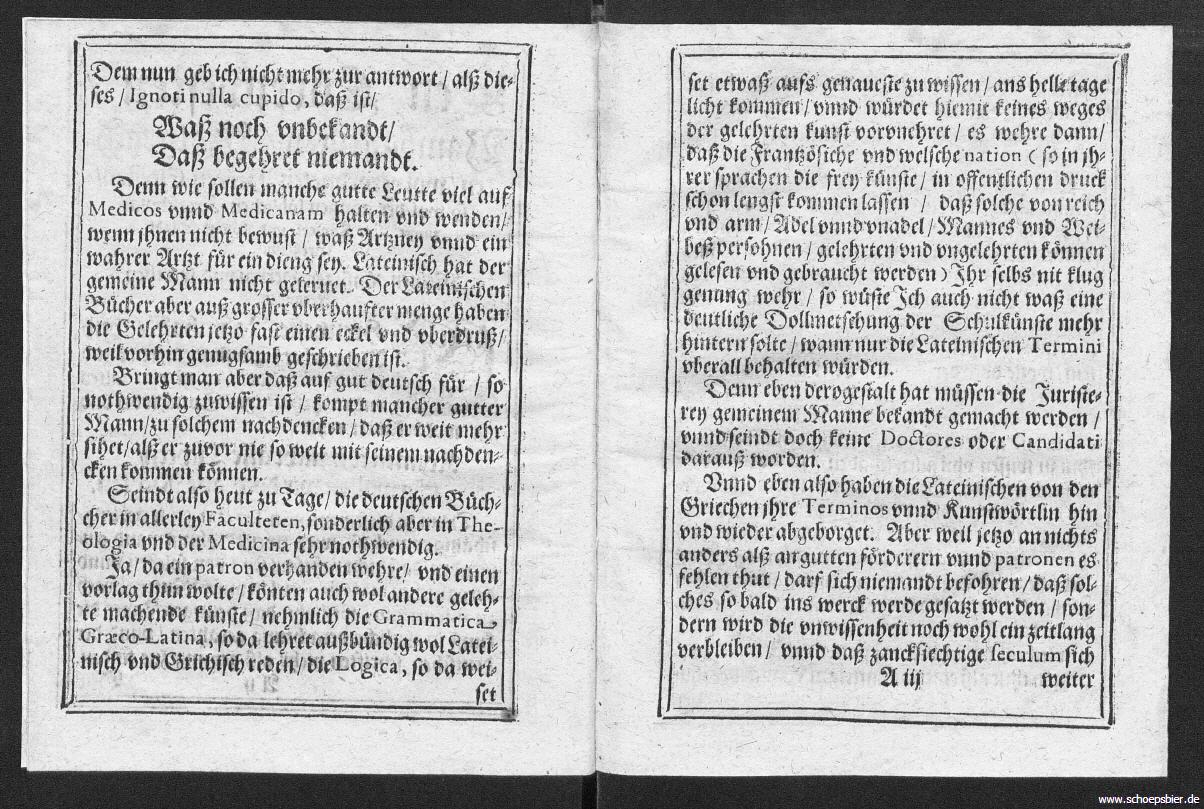 Dem nun geb ich nicht mehr zur antwort / alß die-
ses / Ignoti nulla cupido, daß ist/
Waß noch vnbekandt/
Daß begehret niemandt.
Denn wie sollen manche gutte Leutte viel auf
Medicos vnnd Medicanam halten vnd wenden/
wenn jhnen nicht bewust / waß Artzney vnnd ein
wahrer Artzt für ein dieng sey. Lateinisch hat der
gemeine Mann nicht gelernet. Der Lateinischen
Bücher aber auß grosser vberhaufter menge haben
die Gelehrten jetzo fast einen eckel vnd vberdruß/
weil vorhin genugsamb geschrieben ist.
Bringt man aber daß auf gut deutsch für / so
nothwendig zuwissen ist / kompt mancher gutter
Mann/zu solchem nachdencken / daß er weit mehr
sihet/alß er zuvor nie so weit mit seinem nachden-
cken kommen können.
Seindt also heut zu Tage/ die deutschen Büch-
cher in allerley Faculteten, sonderlich aber in The-
ologia vnd der Medicina sehr nothwendig.
Ja/ da ein patron verhanden wehre/ vnd einen
vorlag thun wolte / könten auch wol andere geleh-
te machende künste / nehmlich die Grammatica
Græco-Latina, so da lehret außbündig wol Latei-
nisch vnd Grichisch reden/ die Logica, so da wei-
set
set etwaß aufs genaueste zu wissen / ans helle tage
licht kommen / vnnd würdet hiemit keines weges
der gelehrten kunst vorvnehret / es wehre dann/
daß die Frantzösiche vnd welsche nation ( so in jh-
rer sprachen die frey künste / in offentlichen druck
schon lengst kommen lassen / daß solche von reich
vnd arm / Adel vnnd vnadel / Mannes vnd Wei-
beß persohnen / gelehrten vnd vngelehrten können
gelesen vnd gebraucht werden) Jhr selbs nit klug
genung wehr / so wüste Jch auch nicht waß eine
deutliche Dollmetschung der Schulkünste mehr
hintern solte / wann nur die Lateinischen Termini
vberall behalten würden.
Denn eben derogestalt hat müssen die Juriste-
rey gemeinem Manne bekandt gemacht werden /
vnnd seindt doch keine Doctores oder Candidati
darauß worden.
Vnnd eben also haben die Lateinischen von den
Griechen jhre Terminos vnnd Kunstwörtlin hin
vnd wieder abgeborget. Aber weil jetzo an nichts
anders alß an gutten förderern vnnd patronen es
fehlen thut / darf sich niemandt befohren / daß sol-
ches so bald ins werck werde gesatzt werden / son-
dern wird die vnwissenheit noch wohl ein zeitlang
verbleiben / vnnd daß zancksiechtige seculum sich
A iij weiter
www.schoepsbier.de